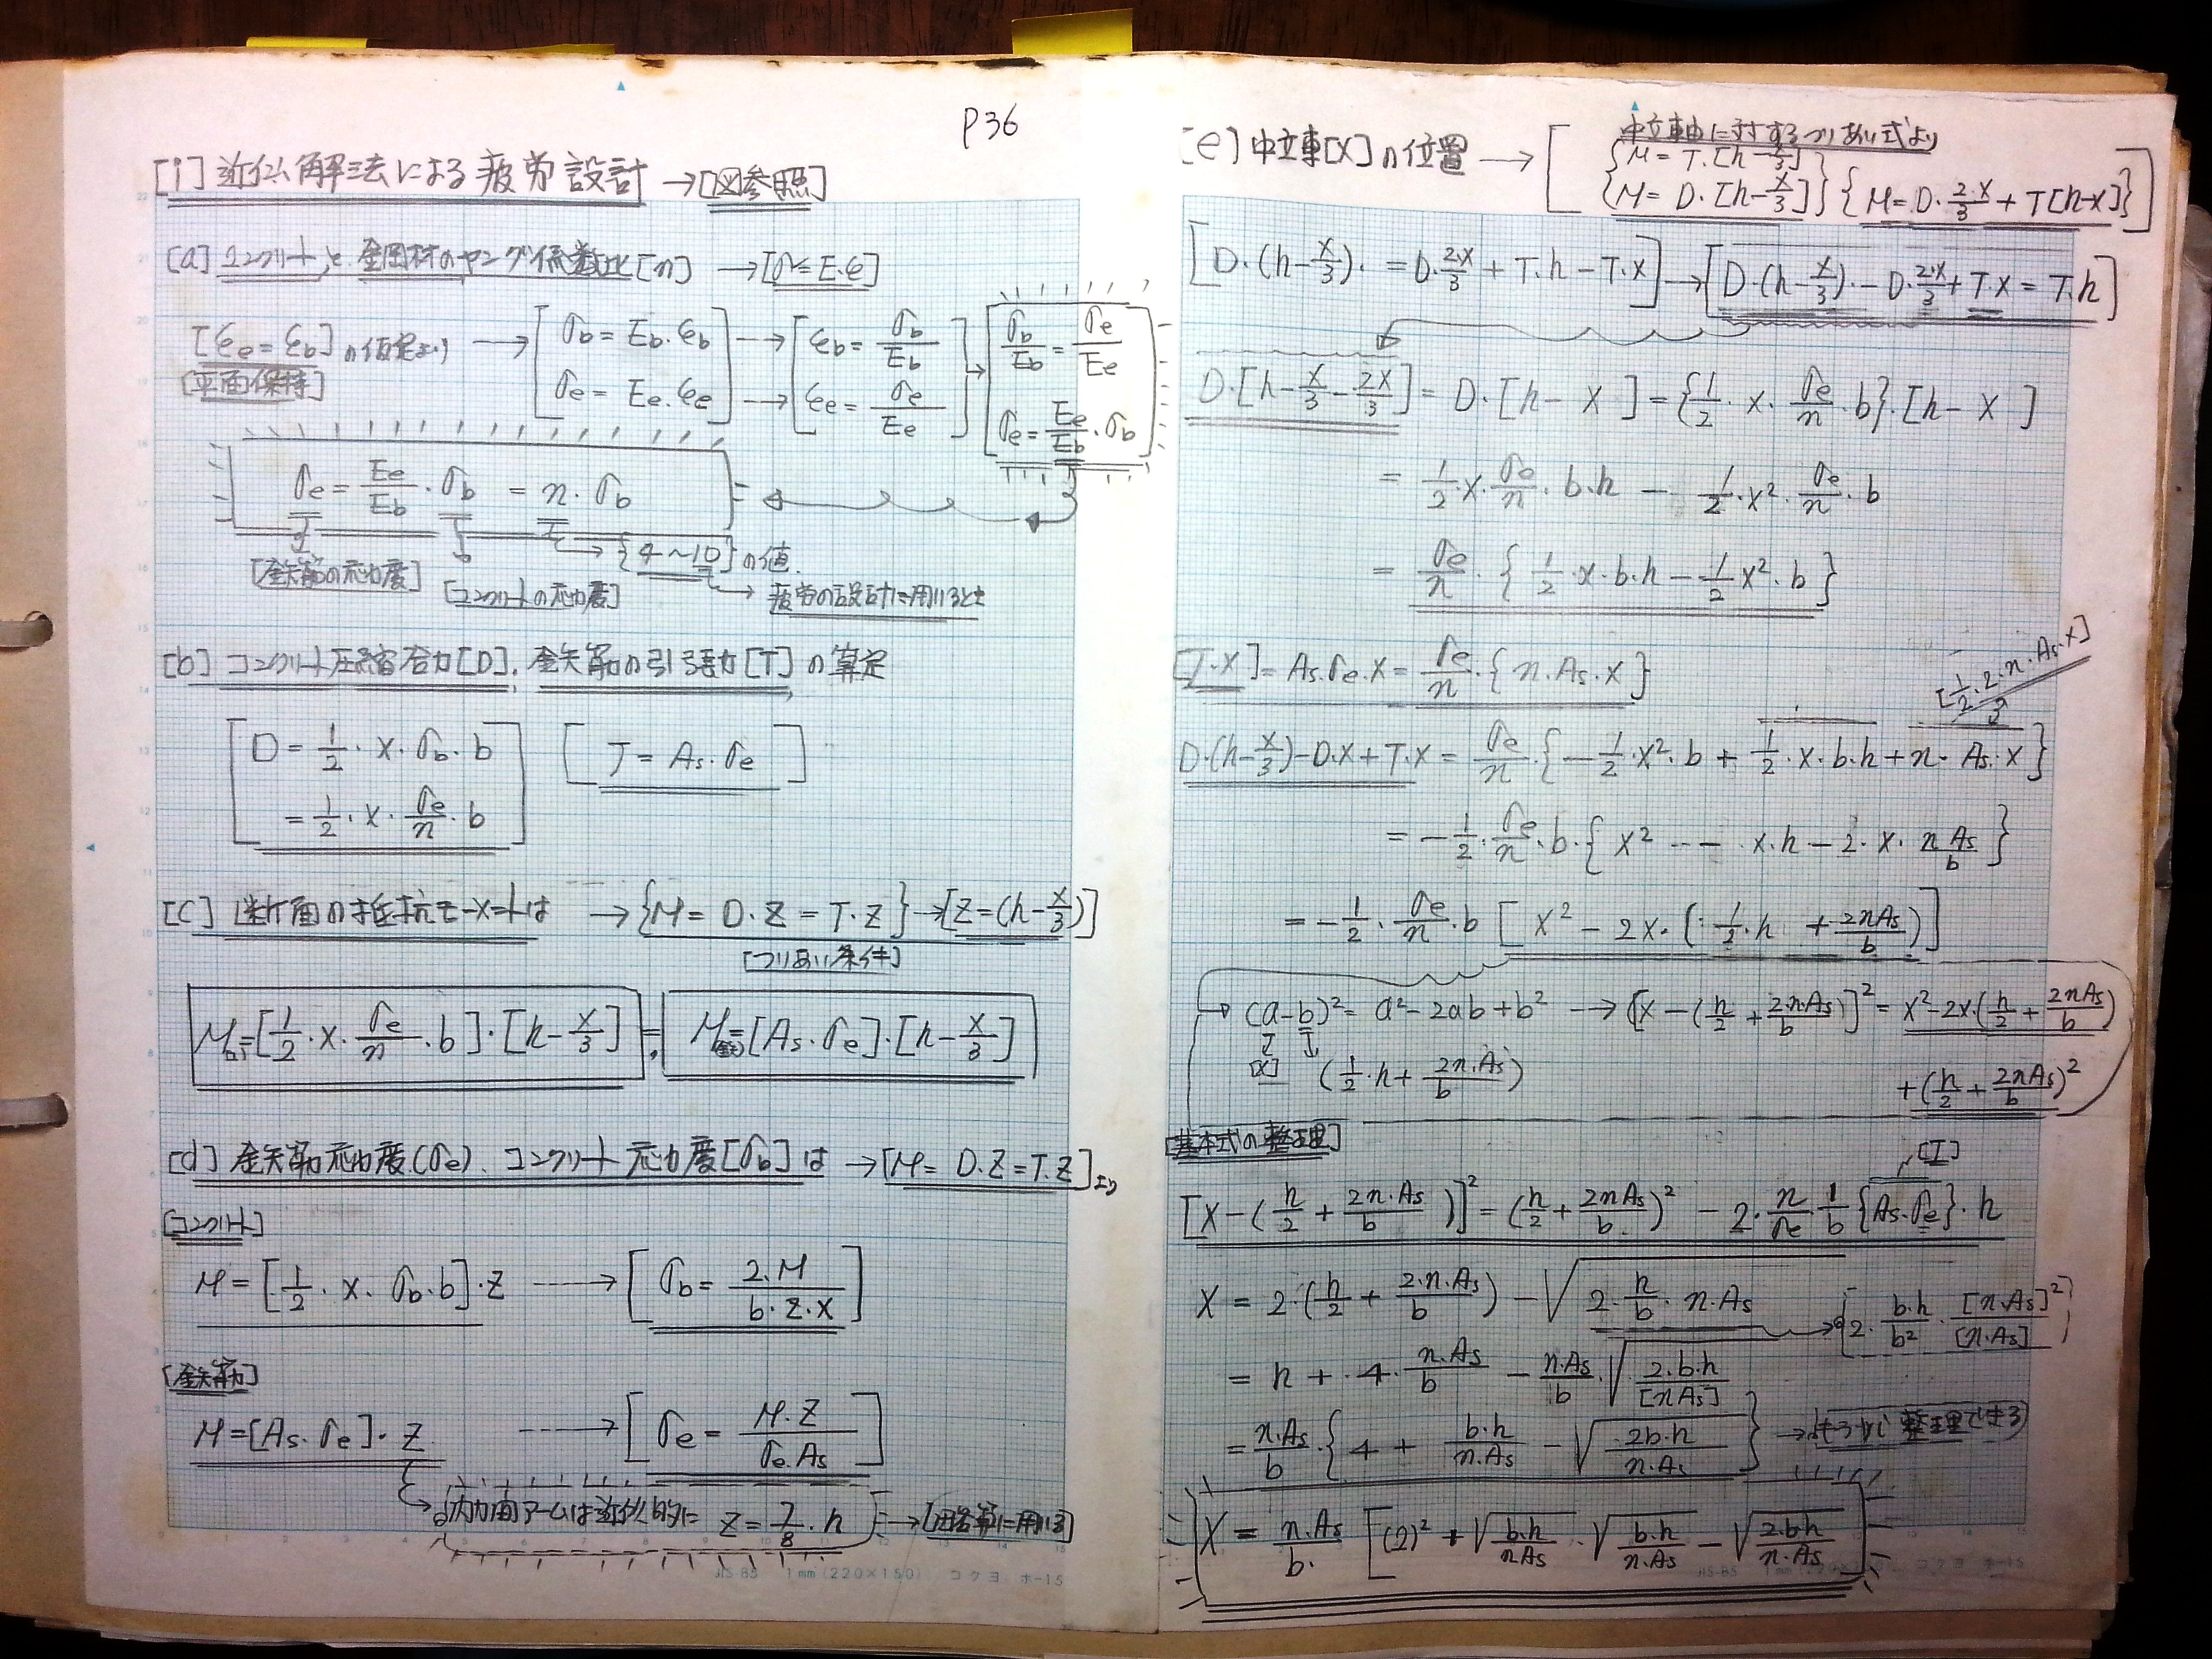 P36
[i] 近似解法による疲労設計 →[図参照]
[a] コンクリートと鉄筋材のヤング係数比[n] →[σ=E・e]
[εe=εb]の仮定より → [σb=Eb・εb → [εb=σb/Eb] → [σb/Eb=σe/Ee
[平面保持] σe=Ee・εe] → εe=σe/Ee] σe=Ee/Eb・σb]
[σe=Ee/Eb・σb=n・σb]
→{4~10}の値.
[鉄筋の応力度] [コンクリートの応力度] → 疲労の設計に用いるとき
[b] コンクリート圧縮合力[D], 鉄筋の引張力[T]の算定
[D=1/2・x・σb・b [T=As・σe]
=1/2・x・σe/n・b]
[c] 断面の抵抗モーメントは →{M=D・Z=T・Z}→[Z=(h-x/3)]
[つりあい条件]
M=[1/2・x・σe/n・b]・[h-x/3] = M=[As・σe]・[h-x/3]
[d] 鉄筋応力度(σe)、コンクリート応力度[σb]は →[M=D・Z=T・Z]より
[コンクリート]
M=[1/2・x・σb・b]・Z ----→ [σb=2・M/b・Z・x]
[鉄筋]
M=[As・σe]・Z ----→ [σe=M・Z/σe・As]
→内力間アームは近似的に Z=7/8・h →[略算に用いる]
JIS-B5 1mm(220×150) コクヨ ホ-15
[e] 中立軸[X]の位置 → [中立軸に対するつりあい式より
{M=T・[h-x/3]
{M=D・[h-x/3]} {M=D・2x/3+T[h-x]}]
[D・(h-x/3)・=D・2・x/3+T・h-T・x]→[D・(h-x/3)・-D・2・x/3+T・x=T・h]
D・[h-x/3-2x/3]=D・[h-x]={1/2・x・σe/n・b}・[h-x]
=1/2・x・σe/n・b・h-1/2・x²・σe/n・b
=σe/n・{1/2・x・b・h-1/2x²・b}
[T・x]=As・σe・x=σe/n・{n・As・x}
[1/2・2・n・As・x]
D・(h-x/3)-D・x+T・x=σe/n・{-1/2・x²・b+1/2・x・b・h+n・As・x}
=-1/2・σe/n・b・{x² -- x・h-2・x・nAs/b}
=-1/2・σe/n・b[x²-2x・(1/2・h+2nAs/b)]
→(a-b)²=a²-2ab+b² → [x-(h/2+2n・As/b)]²=x²-2x・(h/2+2nAs/b)
[x] (1/2・h+2n・As/b) +(h/2+2nAs/b)²
[基本式の整理]
[T]
[x-(h/2+2n・As/b)]²=(h/2+2nAs/b)²-2・n/σe・1/b{As・σe}・h
X=2・(h/2+2・n・As/b)-√2・h/b・n・As →{2・b・h/b²・[n・As]²/[n・As]}
=h+・4・n・As/b-n・As/b・√2・b・h/[nAs]
=n・As/b・{4+b・h/n・As-√2b・h/n・As} →整理できる
X=n・As/b・[(2)²+√b・h/nAs・√b・h/n・As-√2・bh/n・As]